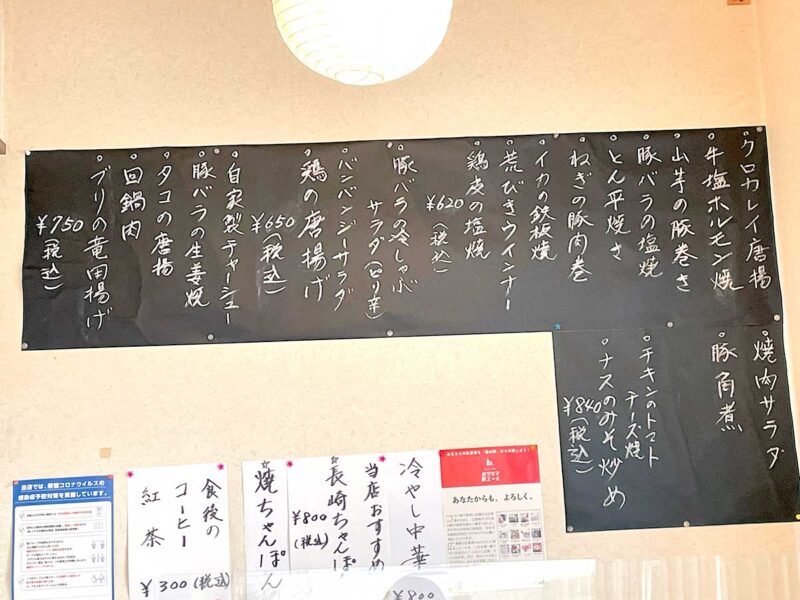 ○クロカレイ唐揚
○牛塩ホルモン焼
○山芋の豚巻き
○豚バラの塩焼
○とん平焼き
○ねぎの豚肉巻
○イカの鉄板焼
○荒びきウインナー
○鶏皮の塩焼
¥620(税込)
○豚バラの冷しゃぶ
サラダ(ピリ辛)
○バンバンジーサラダ
○鶏の唐揚げ
¥650(税込)
○自家製チャーシュー
○豚バラの生姜焼
○タコの唐揚
○回鍋肉
○ブリの竜田揚げ
¥750(税込)
○焼肉サラダ
○豚角煮
○チキンのトマト
チーズ焼
○ナスのみそ炒め
¥840(税込)
冷やし中華
¥800
当店おすすめ
☆長崎ちゃんぽん
¥800(税込)
☆焼ちゃんぽん
食後の
コーヒー
紅茶
¥300(税込)
当店は、新型コロナウイルスの
感染症予防対策を実施しています。
あなたからも、よろしく。